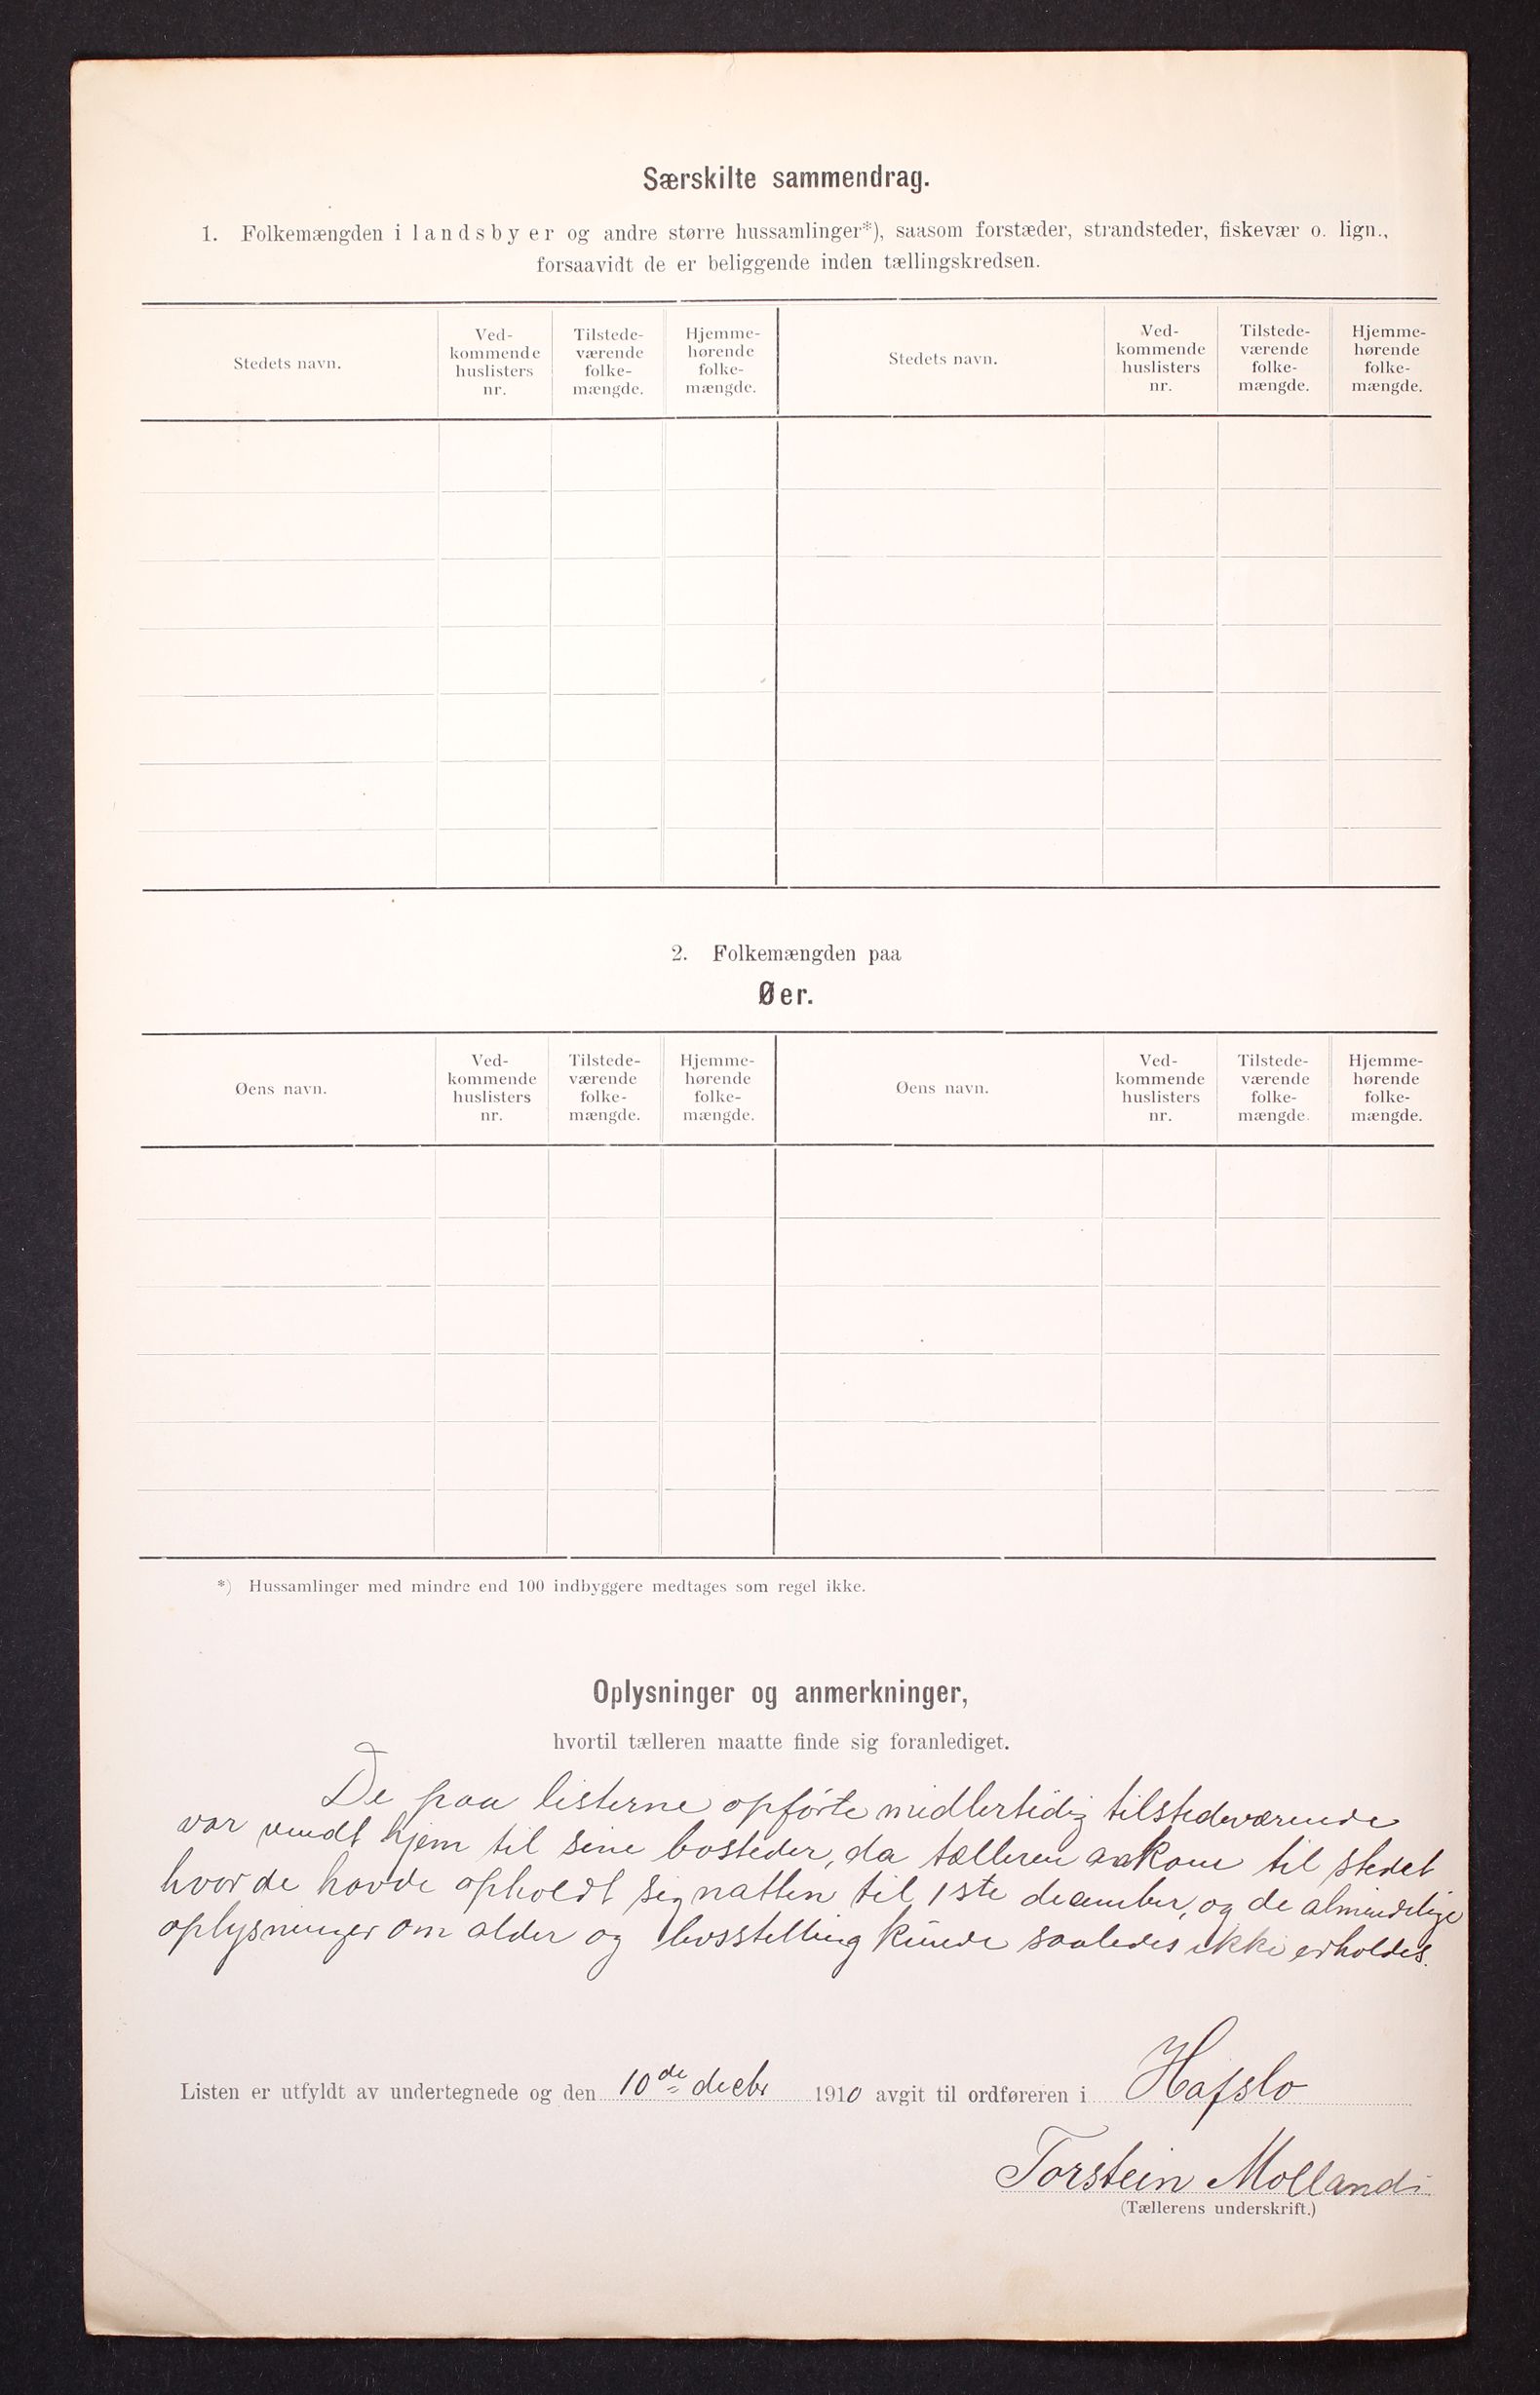 Særskilte sammendrag.
1. Folkemængden i landsbyer og andre større hussamlinger*), saasom forstæder, strandsteder, fiskevær o. lign.,
forsaavidt de er beliggende inden tællingskredsen.
Stedets navn.
Ved-
kommende
huslisters
nr.
Tilstede-
værende
folke-
mængde.
Hjemme-
hørende
folke-
mængde.
Stedets navn.
Ved-
kommende
huslisters
nr.
Tilstede-
værende
folke-
mængde.
Hjemme-
hørende
folke-
mængde.
2. Folkemængden paa
Øer.
Øens navn.
Ved-
kommende
huslisters
nr.
Tilstede-
værende
folke-
mængde.
Hjemme-
hørende
folke-
mængde.
Øens navn.
Ved-
kommende
huslisters
nr.
Tilstede-
værende
folke-
mængde.
Hjemme-
hørende
folke-
mængde.
*) Hussamlinger med mindre end 100 indbyggere medtages som regel ikke.
Oplysninger og anmerkninger,
hvortil tælleren maatte finde sig foranlediget.
De paa listerne opførte midlertidig tilstedeværende
var vendt hjem til sine bosteder, da tælleren ankom til stedet
hvor de havde opholdt sig natten til 1ste december, og de almindelige
oplysninger om alder og livsstelling kunde saaledes ikke erholdes.
Listen er utfyldt av undertegnede og den 10de decbr 1910 avgit til ordføreren i Hafslo
Torstein Molland
(Tællerens underskrift.)